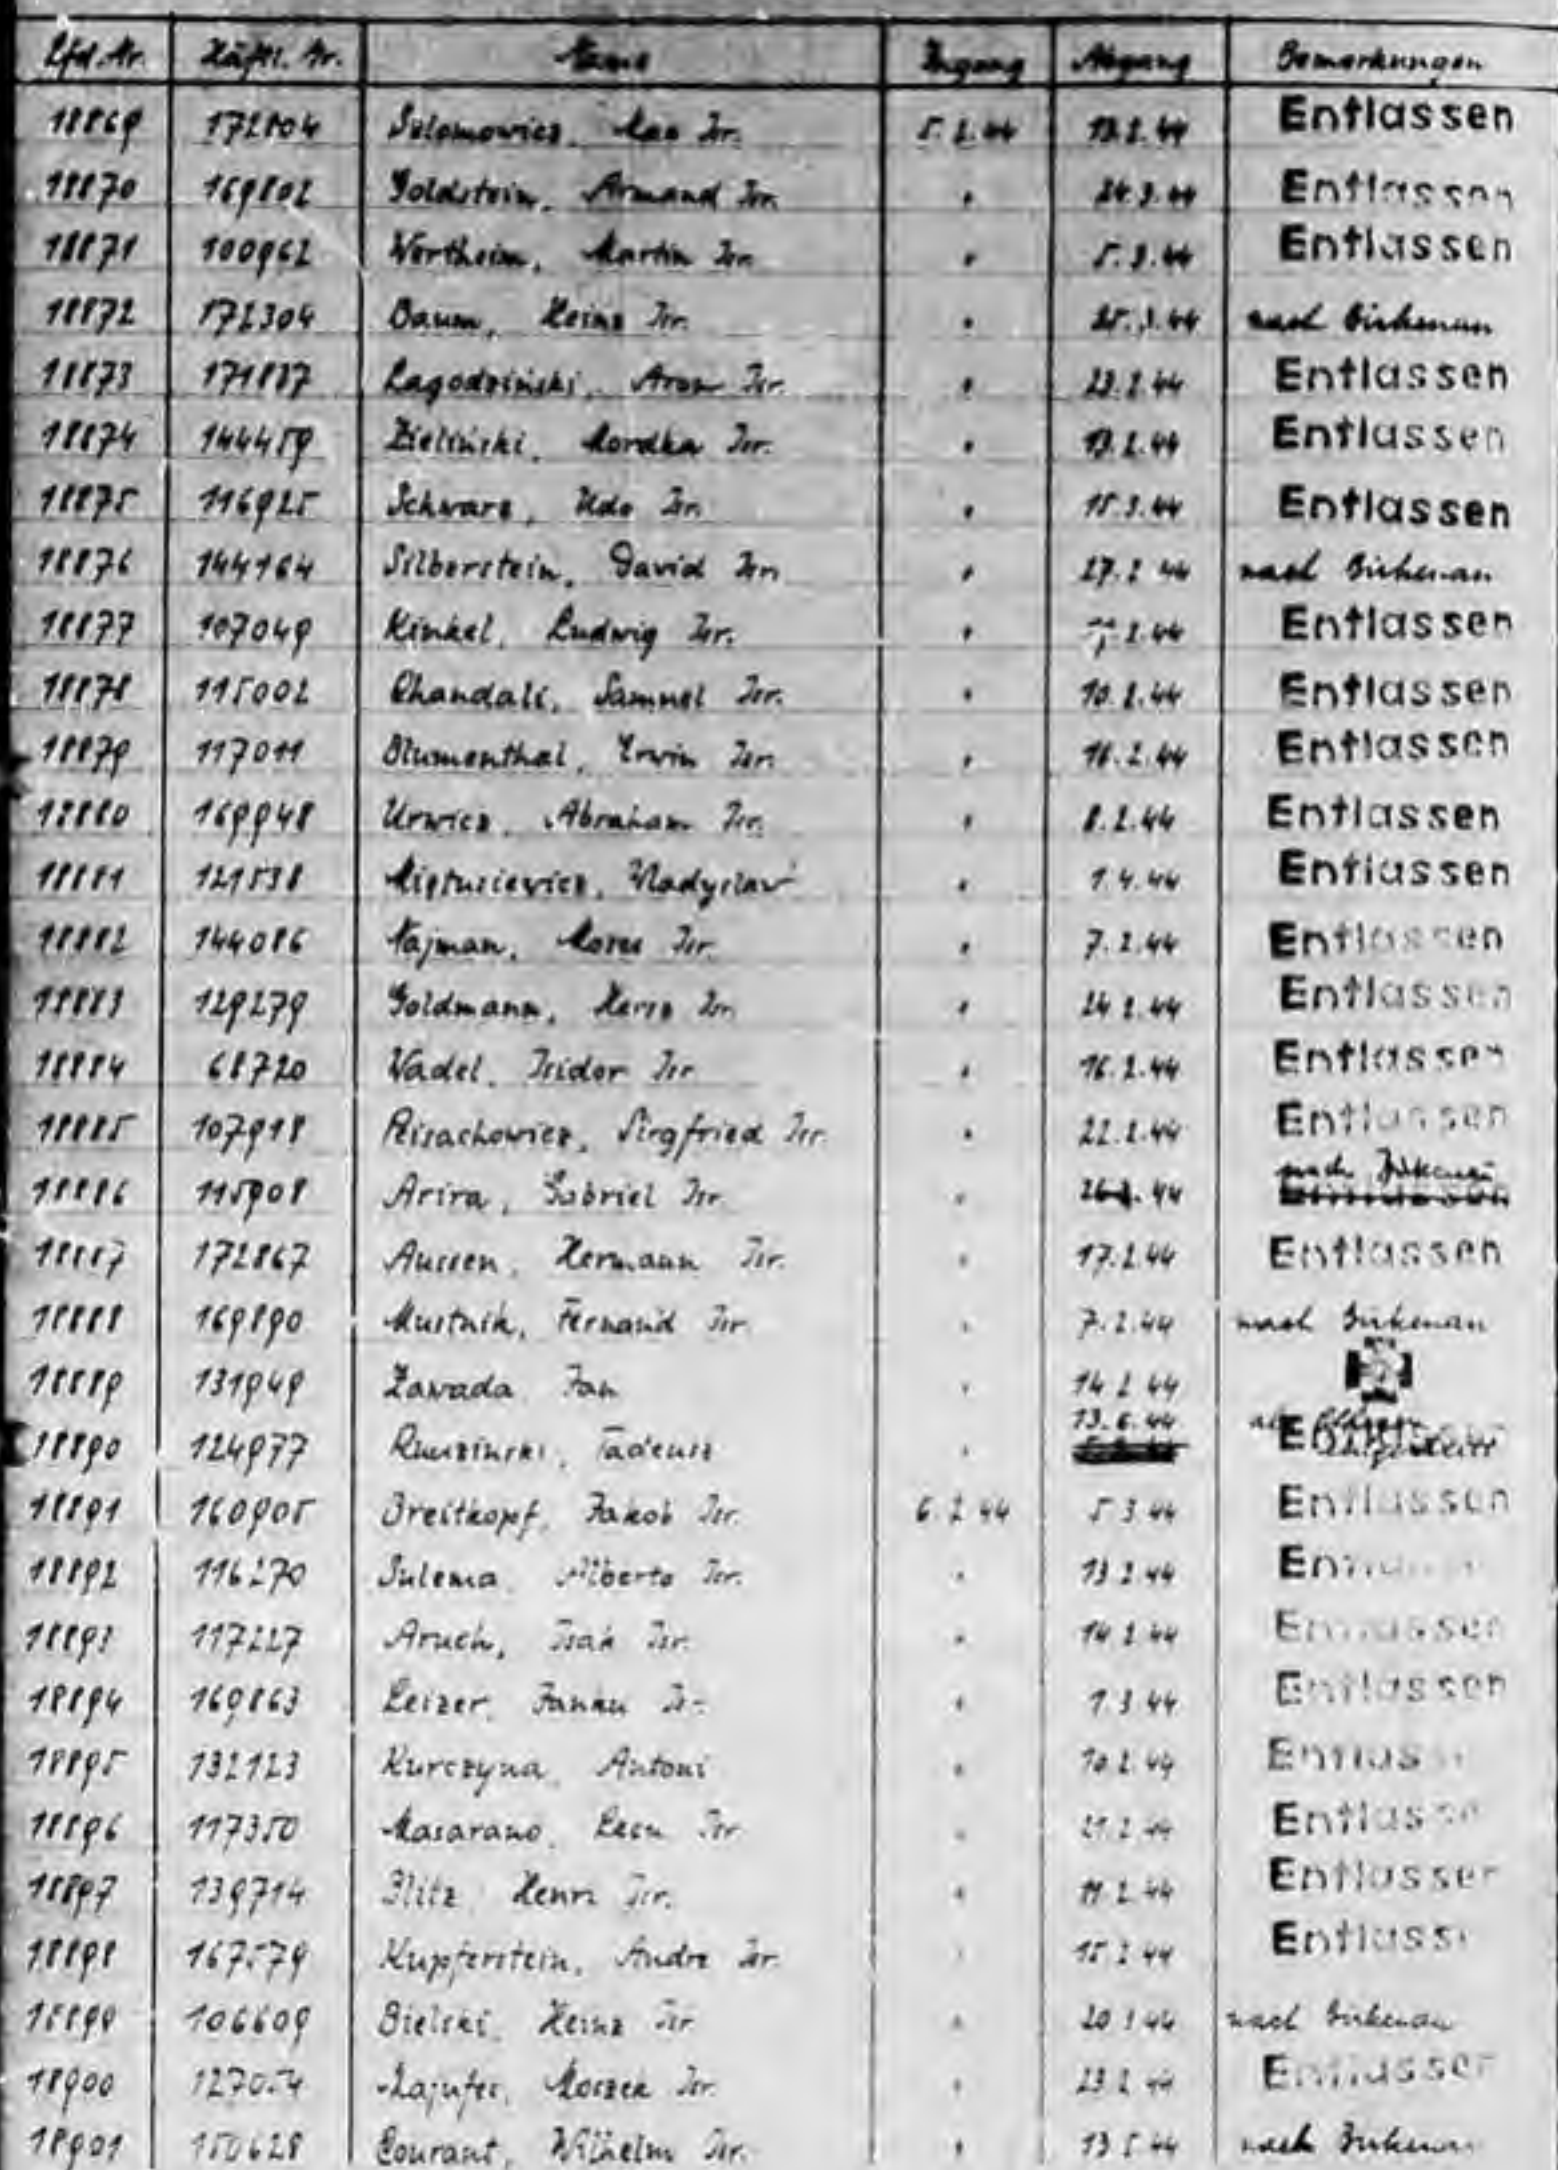 Lfd. Nr. Häftl. Nr. Name Zugang Abgang Bemerkungen
18869 172804 Salomowicz, Max Isr. 5.2.44 13.2.44 Entlassen
18870 169802 Goldstein, Armand Isr. " 24.3.44 Entlassen
18871 100962 Wertheim, Martin Isr. " 5.3.44 Entlassen
18872 172304 Baum, Heinz Isr. " 25.3.44 nach Birkenau
18873 171887 Lagodzinski, Aron Isr. " 23.2.44 Entlassen
18874 144459 Zielinski, Mordka Isr. " 13.2.44 Entlassen
18875 116925 Schwarz, Udo Isr. " 15.3.44 Entlassen
18876 144164 Silberstein, David Isr. " 27.2.44 nach Birkenau
18877 107049 Kinkel, Ludwig Isr. " 2.44 Entlassen
18878 115002 Chandali, Samuel Isr. " 10.2.44 Entlassen
18879 117011 Blumenthal, Erwin Isr. " 16.2.44 Entlassen
18880 169948 Urwicz, Abraham Isr. " 8.2.44 Entlassen
18881 121538 Wladyslaw " 1.4.44 Entlassen
18882 144086 Najman, Moses Isr. " 7.2.44 Entlassen
18883 129279 Goldmann, Hersz Isr. " 24.2.44 Entlassen
18884 68720 Wadel, Isidor Isr. " 16.2.44 Entlassen
18885 107918 Reisachowicz, Siegfried Isr. " 22.2.44 Entlassen
18886 115908 Arira, Gabriel Isr. " 26.2.44 nach Birkenau
18887 172867 Aussen, Hermann Isr. " 17.2.44 Entlassen
18888 169890 Mustnik, Fernand Isr. " 7.2.44 nach Birkenau
18889 131949 Zawada Jan " 14.2.44
18890 124977 Tadeusz " 13.6.44
18891 160905 Breitkopf, Jakob Isr. 6.2.44 5.3.44 Entlassen
18892 116270 Sulema Alberto Isr. " 13.2.44 Entlassen
18893 117227 Aruch, Isak Isr. " 14.2.44 Entlassen
18894 169863 Leizer, Janku Isr. " 1.3.44 Entlassen
18895 132123 Kurczyna, Antoni " 10.2.44 Entlassen
18896 117350 Masarano, Leon Isr. " 21.2.44 Entlassen
18897 139714 Blitz Henri Isr. " 11.2.44 Entlassen
18898 167579 Kupferstein, Andre Isr. " 15.2.44 Entlassen
18899 106609 Bielski, Heinz Isr. " 20.2.44 nach Birkenau
18900 Moszek Isr. " 23.2.44 Entlassen
18901 150628 Courant, Wilhelm Isr. " 13.5.44 nach Birkenau